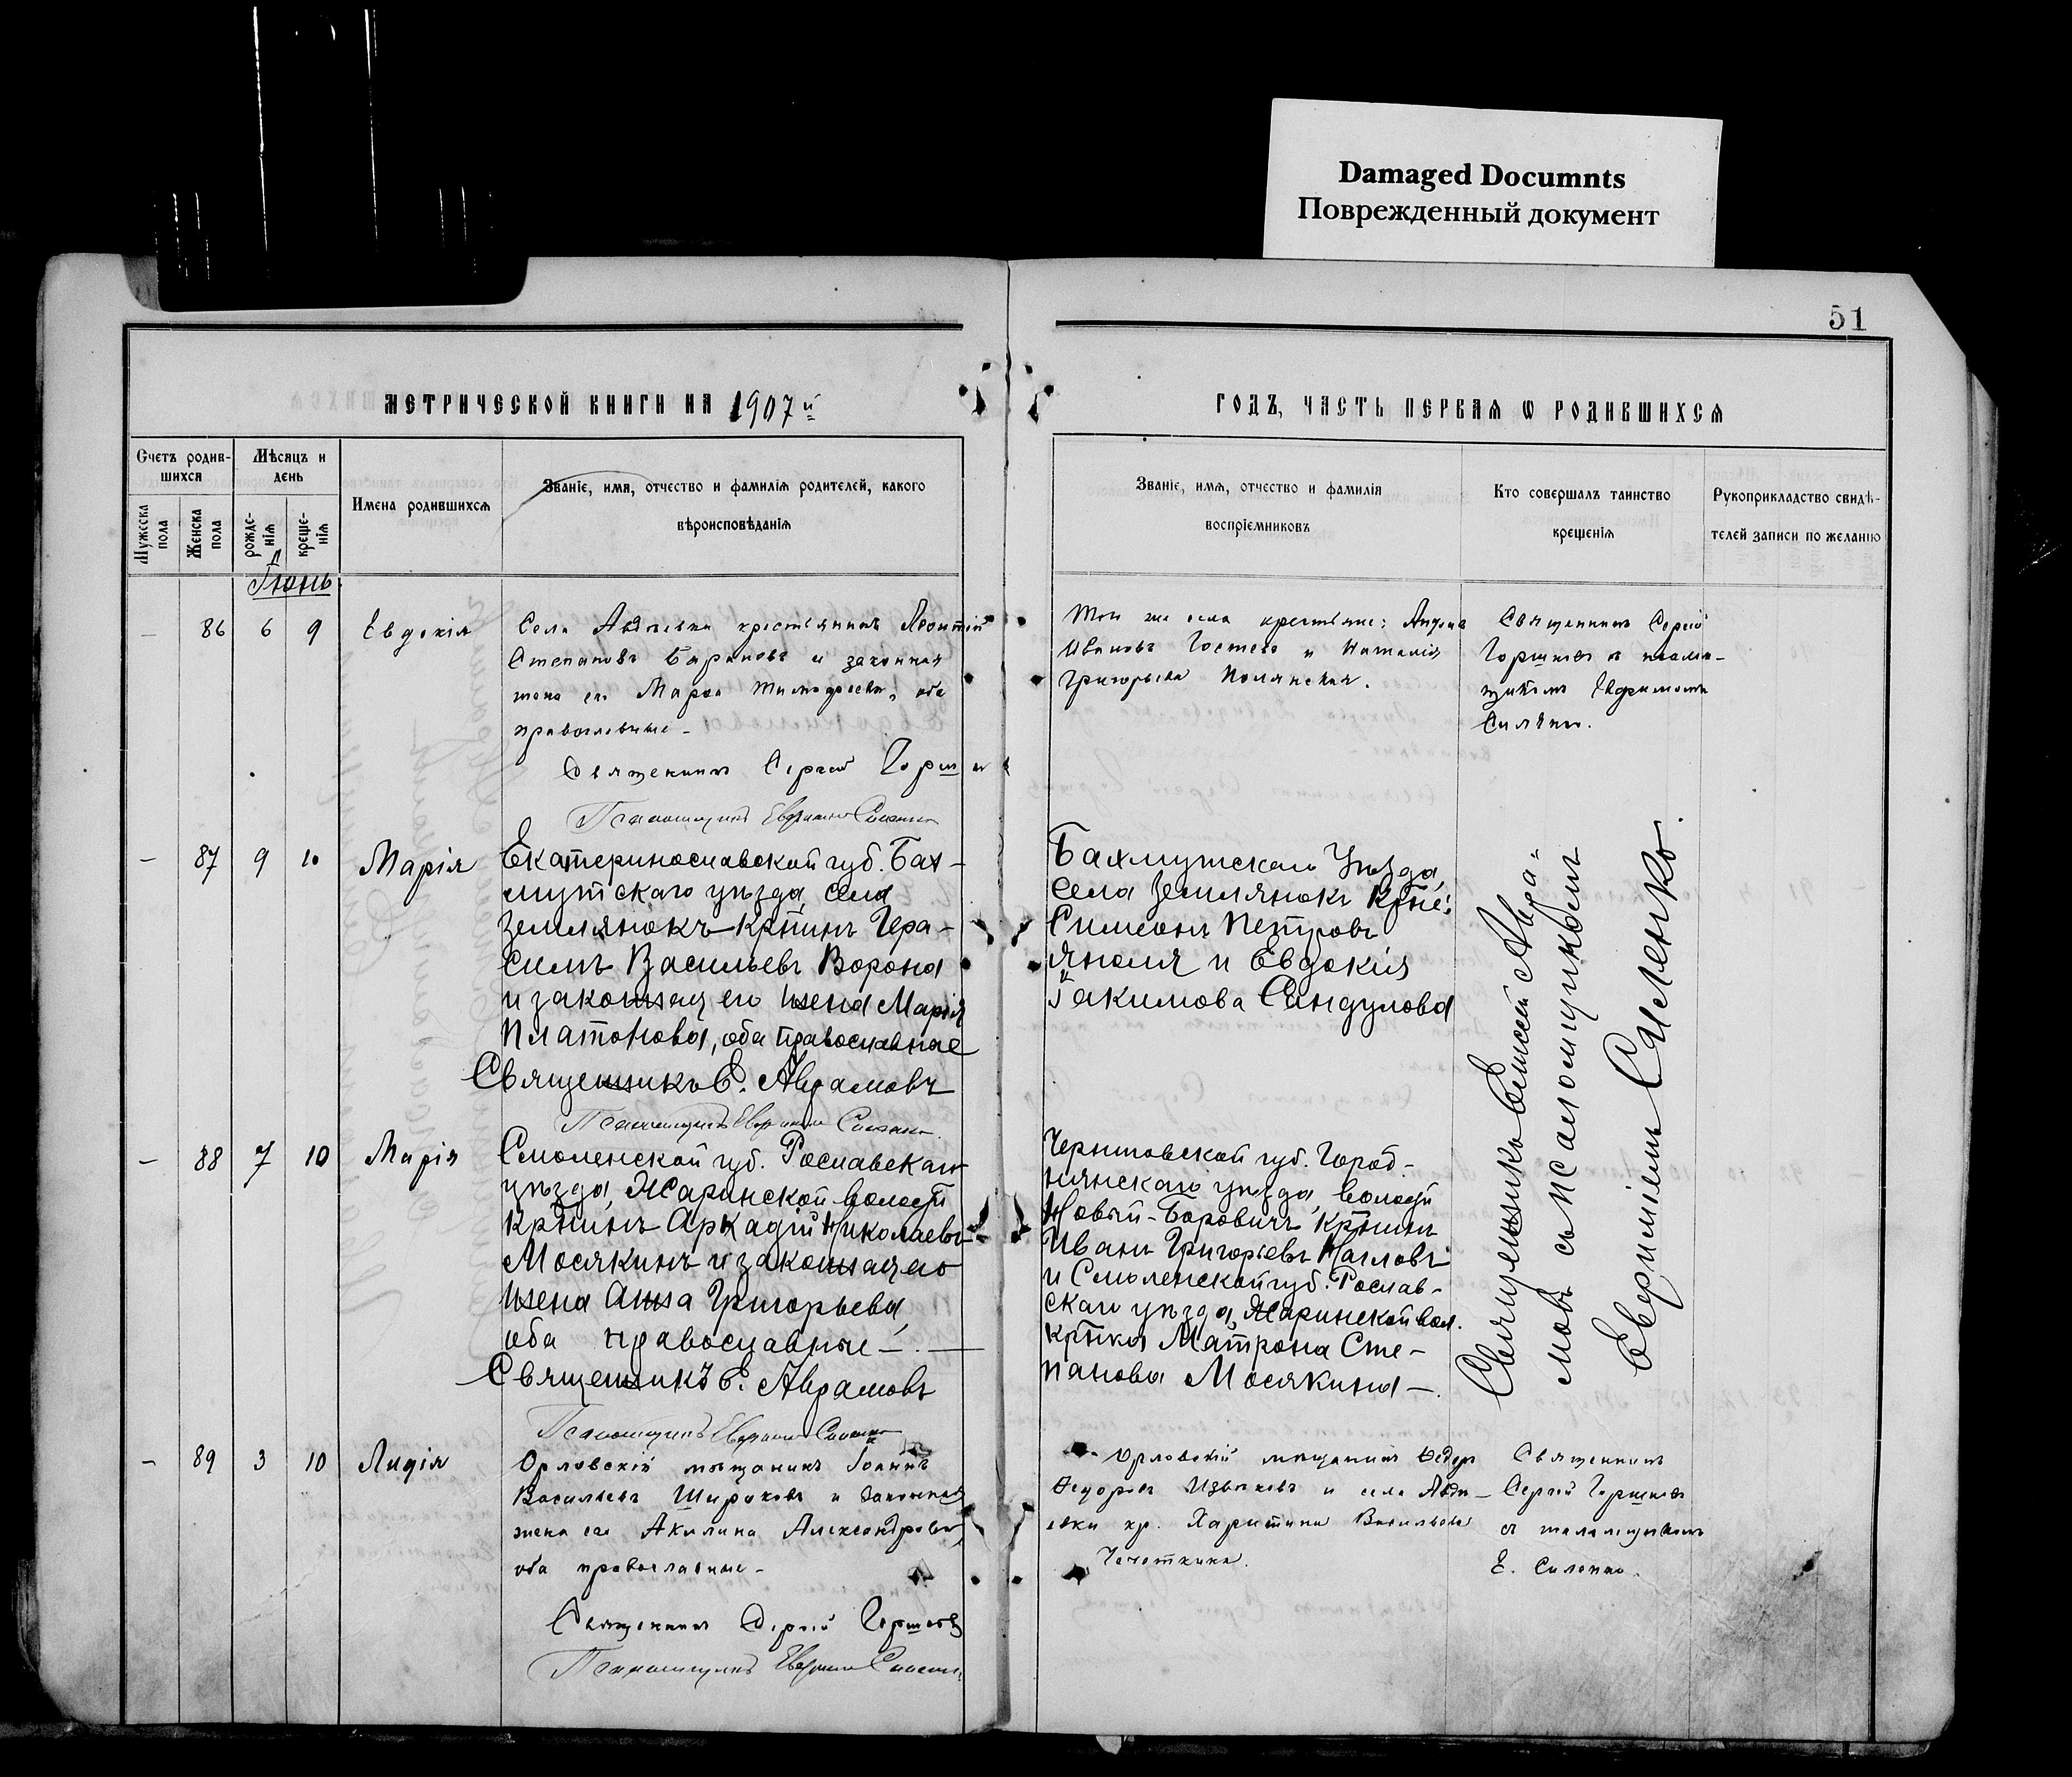 Damaged Documnts
Поврежденный документ
51
МЕТРИЧЕСКОЙ КНИГИ НА 1907й
ГОДЪ, ЧАСТЬ ПЕРВАѦ Ѡ РОДИВШИХСѦ
Счетъ родив-
шихся
Мѣсяцъ и
день
Мужеска
пола
Женска
пола
рожде-
нія
креще-
нія
Имена родившихся
Званіе, имя, отчество и фамилія родителей, какого
вѣроисповѣданія
Званіе, имя, отчество и фамилія
воспріемниковъ
Кто совершалъ таинство
крещенія
Рукоприкладство свидѣ-
телей записи по желанію
Іюнь
86 6 9 Евдокія
Села Авдѣевки крестьянинъ Леонтій
Степановъ Барановъ и законная
жена его Марѳа Тимофеева, оба
православные -
Священникъ Сергій
Псаломщикъ
Той же села крестьяне:
Ивановъ и Наталія
Григорьева Полянская.
Священникъ Сергій
Горшковъ съ псалом-
щикомъ Евфиміемъ
Силенко.
- 87 9 10 Марія
Екатеринославской губ. Бах-
мутскаго уѣзда, села
Землянокъ кр̅тнинъ Гера-
симъ Васильевъ Ворона
и законная его жена Марія
Платонова, оба православные
Священникъ Е. Аврамовъ
Псаломщикъ
Бахмутскаго Уѣзда,
села Землянокъ Кр̅тне:
Симеонъ Петровъ
и Евдокія
Іакимова Сандулова
Священникъ Елисей Авра-
мовъ съ псаломщикомъ
Евфиміемъ Силенко.
- 88 7 10 Марія
Смоленской губ. Рославскаго
уѣзда, Жаринской волости
кр̅тнинъ Аркадій Николаевъ
Мосякинъ и законная его
жена Анна Григорьева,
оба православные -. -
Священникъ Е. Аврамовъ
Псаломщикъ
Черниговской губ. Город-
нянскаго уѣзда, волости
Новый-Боровичъ, кр̅тнинъ
Иванъ Григорьевъ
и Смоленской губ. Рослав-
скаго уѣзда, Жаринской вол.
кр̅тнка Матрона Сте-
панова Мосякина -.
- 89 3 10 Лидія
Орловскій мѣщанинъ Іоаннъ
Васильевъ Широковъ и законная
жена его Акилина Александрова,
оба православные -
Священникъ Сергій Горшковъ
Псаломщикъ
Орловскій мѣщанинъ Ѳедоръ
Ѳедоровъ и села Авдѣ-
евки кр. Харитина Васильева
Чечоткина.
Священникъ
Сергій Горшковъ
съ псаломщикомъ
Е. Силенко.